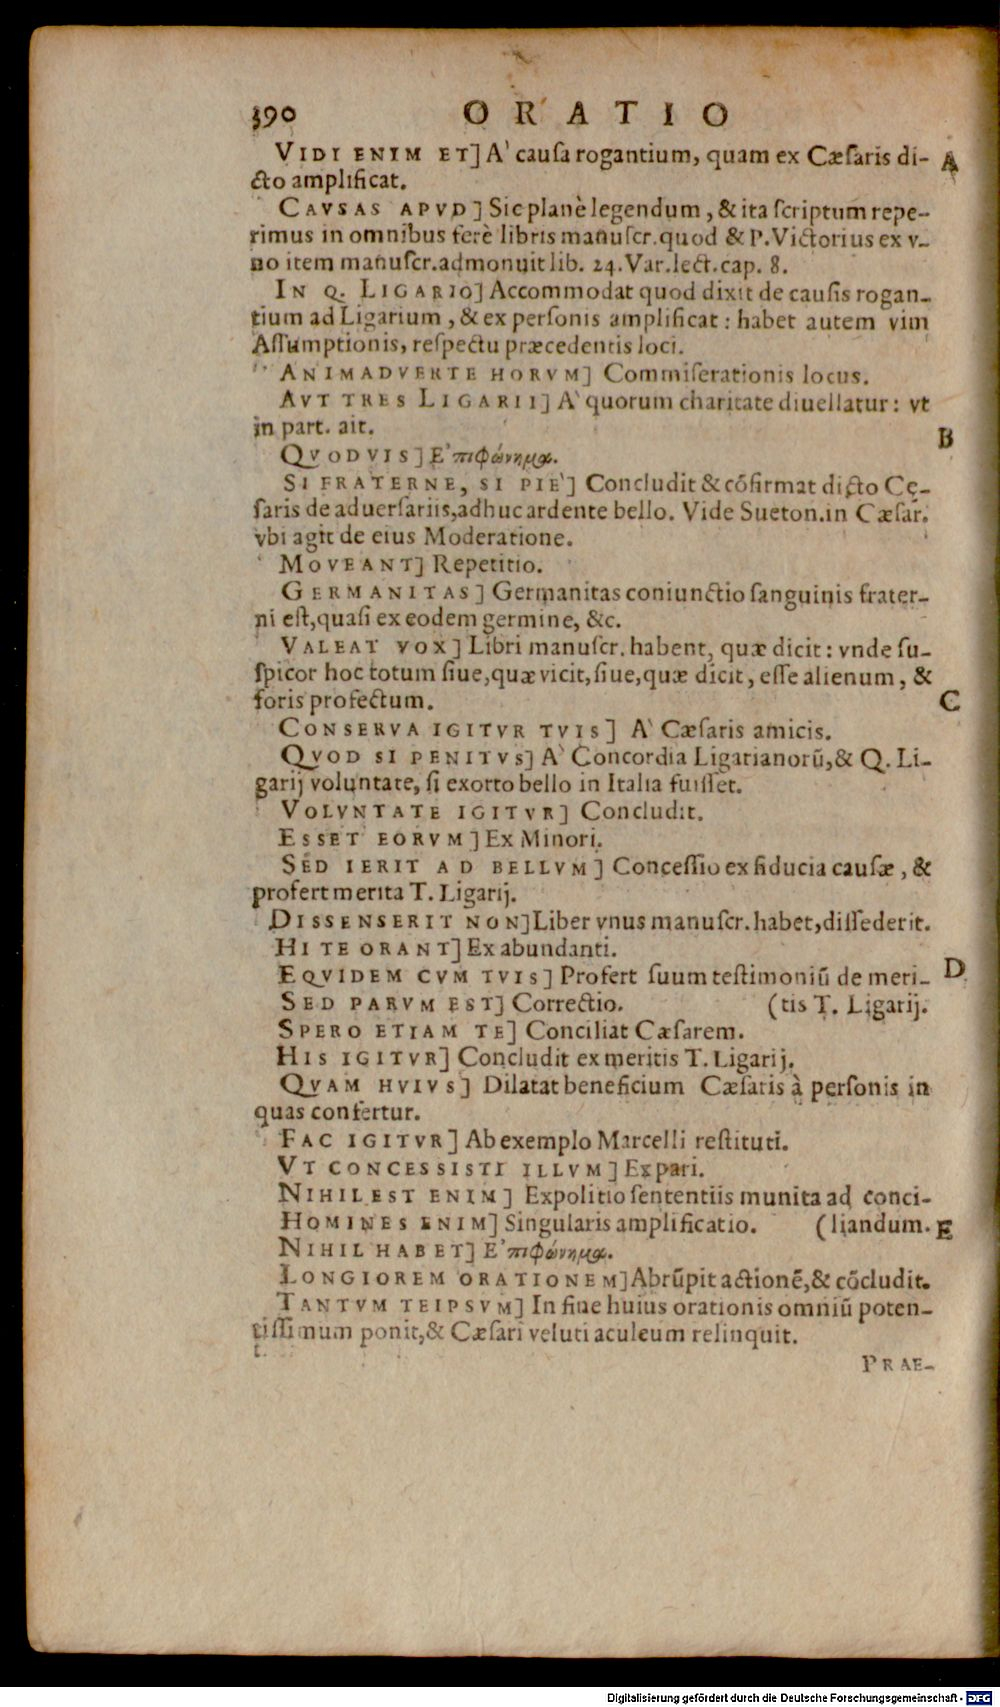 390 ORATIO
VIDI ENIM ET] A' cauſa rogantium, quam ex Cæſaris di- A
cto amplificat.
CAVSAS APVD] Sic planè legendum, & ita ſcriptum repe-
rimus in omnibus ferè libris manuſcr. quod & P. Victorius ex v-
no item manuſcr. admonuit lib. 24. Var. lect. cap. 8.
IN Q. LIGARIO] Accommodat quod dixit de cauſis rogan-
tium ad Ligarium, & ex perſonis amplificat: habet autem vim
Aſſumptionis, reſpectu præcedentis loci.
ANIMADVERTE HORVM] Commiſerationis locus.
AVT TRES LIGARII] A' quorum charitate diuellatur: vt
in part. ait. B
QVODVIS] Ε'πιφώνημα.
SI FRATERNE, SI PIE'] Concludit & cõfirmat dicto Cę-
ſaris de aduerſariis, adhuc ardente bello. Vide Sueton. in Cæſar.
vbi agit de eius Moderatione.
MOVEANT] Repetitio.
GERMANITAS] Germanitas coniunctio ſanguinis frater-
ni eſt, quaſi ex eodem germine, &c.
VALEAT VOX] Libri manuſcr. habent, quæ dicit: vnde ſu-
ſpicor hoc totum ſiue, quæ vicit, ſiue, quæ dicit, eſſe alienum, &
foris profectum. C
CONSERVA IGITVR TVIS] A' Cæſaris amicis.
QVOD SI PENITVS] A' Concordia Ligarianorũ, & Q. Li-
garij voluntate, ſi exorto bello in Italia fuiſſet.
VOLVNTATE IGITVR] Concludit.
ESSET EORVM] Ex Minori.
SED IERIT AD BELLVM] Conceſſio ex fiducia cauſæ, &
profert merita T. Ligarij.
DISSENSERIT NON] Liber vnus manuſcr. habet, diſſederit.
HI TE ORANT] Ex abundanti.
EQVIDEM CVM TVIS] Profert ſuum teſtimoniũ de meri- D
SED PARVM EST] Correctio. (tis T. Ligarij.
SPERO ETIAM TE] Conciliat Cæſarem.
HIS IGITVR] Concludit ex meritis T. Ligarij.
QVAM HVIVS] Dilatat beneficium Cæſaris à perſonis in
quas confertur.
FAC IGITVR] Ab exemplo Marcelli reſtituti.
VT CONCESSISTI ILLVM] Ex pari.
NIHIL EST ENIM] Expolitio ſententiis munita ad conci-
HOMINES ENIM] Singularis amplificatio. (liandum. E
NIHIL HABET] Ε'πιφώνημα.
LONGIOREM ORATIONEM] Abrũpit actionẽ, & cõcludit.
TANTVM TEIPSVM] In fine huius orationis omniũ poten-
tiſſimum ponit, & Cæſari veluti aculeum relinquit.
PRAE-
Digitalisierung gefördert durch die Deutsche Forschungsgemeinschaft - DFG